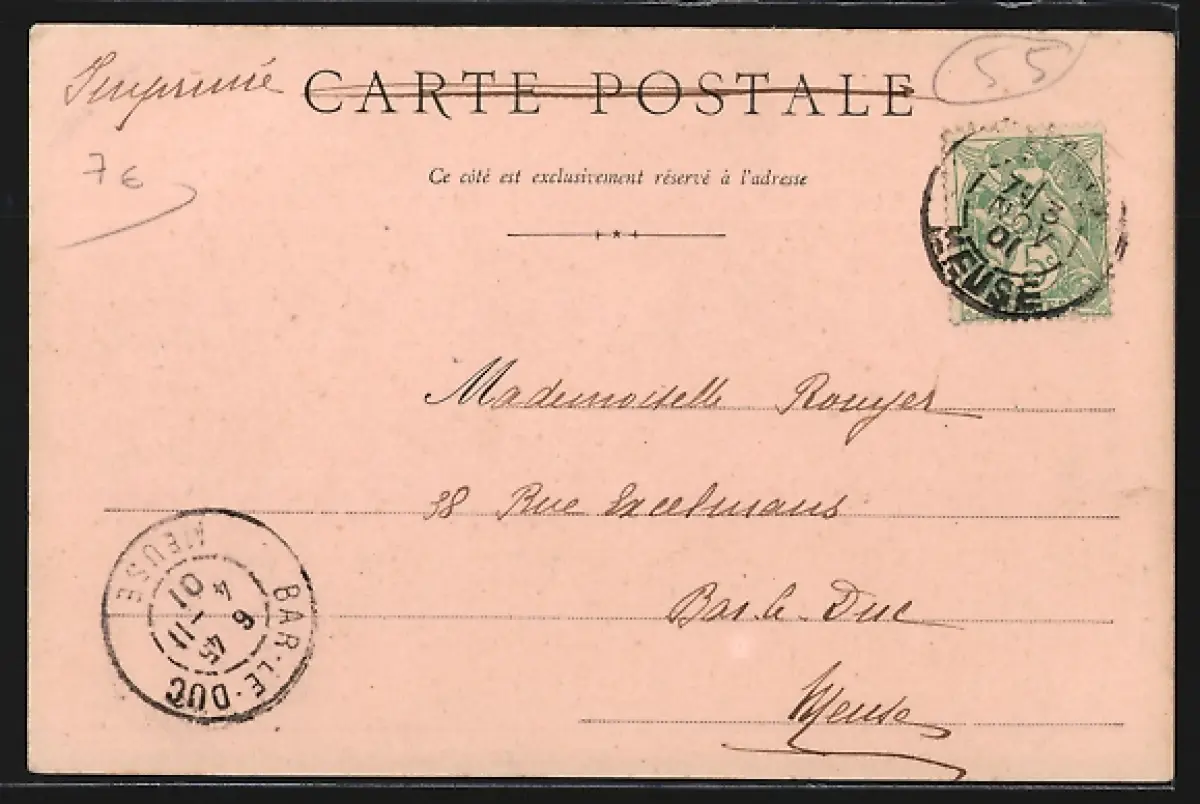 Imprimé
CARTE POSTALE
55
7 €
Ce côté est exclusivement réservé à l'adresse
3
NOV
01
MEUSE
5c
Mademoiselle Rouyer
38 Rue Excelmans
Bar-le-Duc
Meuse
BAR-LE-DUC
MEUSE
6 45
4 -11
01